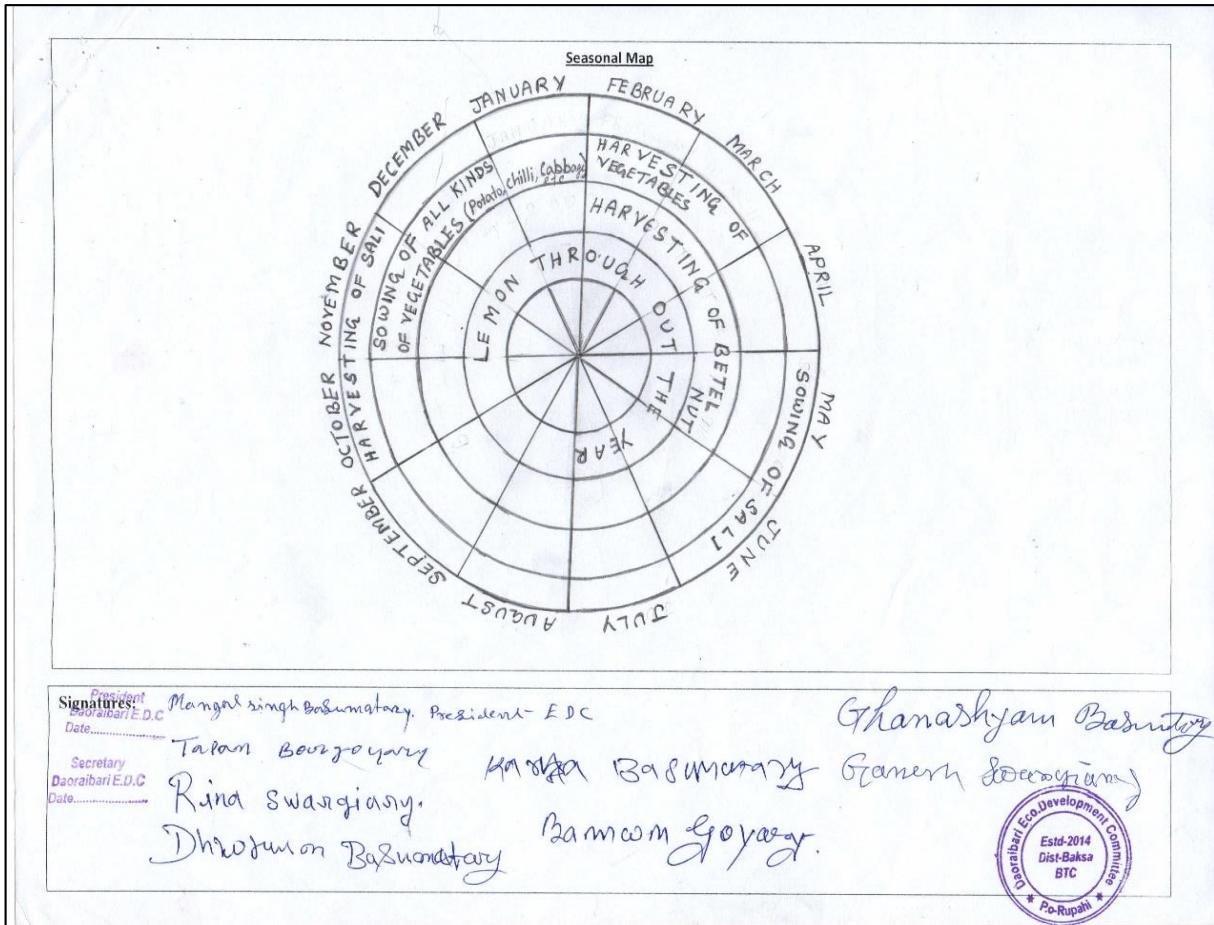 Seasonal Map
JANUARY
FEBRUARY
MARCH
APRIL
MAY
JUNE
JULY
AUGUST
SEPTEMBER
OCTOBER
NOVEMBER
DECEMBER
HARVESTING OF SALI
SOWING OF SALI
SOWING OF ALL KINDS
OF VEGETABLES (Potato, chilli, Cabbage etc)
HARVESTING OF
VEGETABLES
HARVESTING OF BETEL
NUT
LEMON THROUGH OUT THE YEAR
Signatures:
President
Daoraibari E.D.C
Date
Mangal singh Basumatary. President - EDC
Secretary
Daoraibari E.D.C
Date
Rina Swargiary.
Basumatary
Ghanashyam
Ganesh
Goyary.
Daoraibari Eco.Development Committee
Estd-2014
Dist-Baksa
BTC
P.o-Rupahi